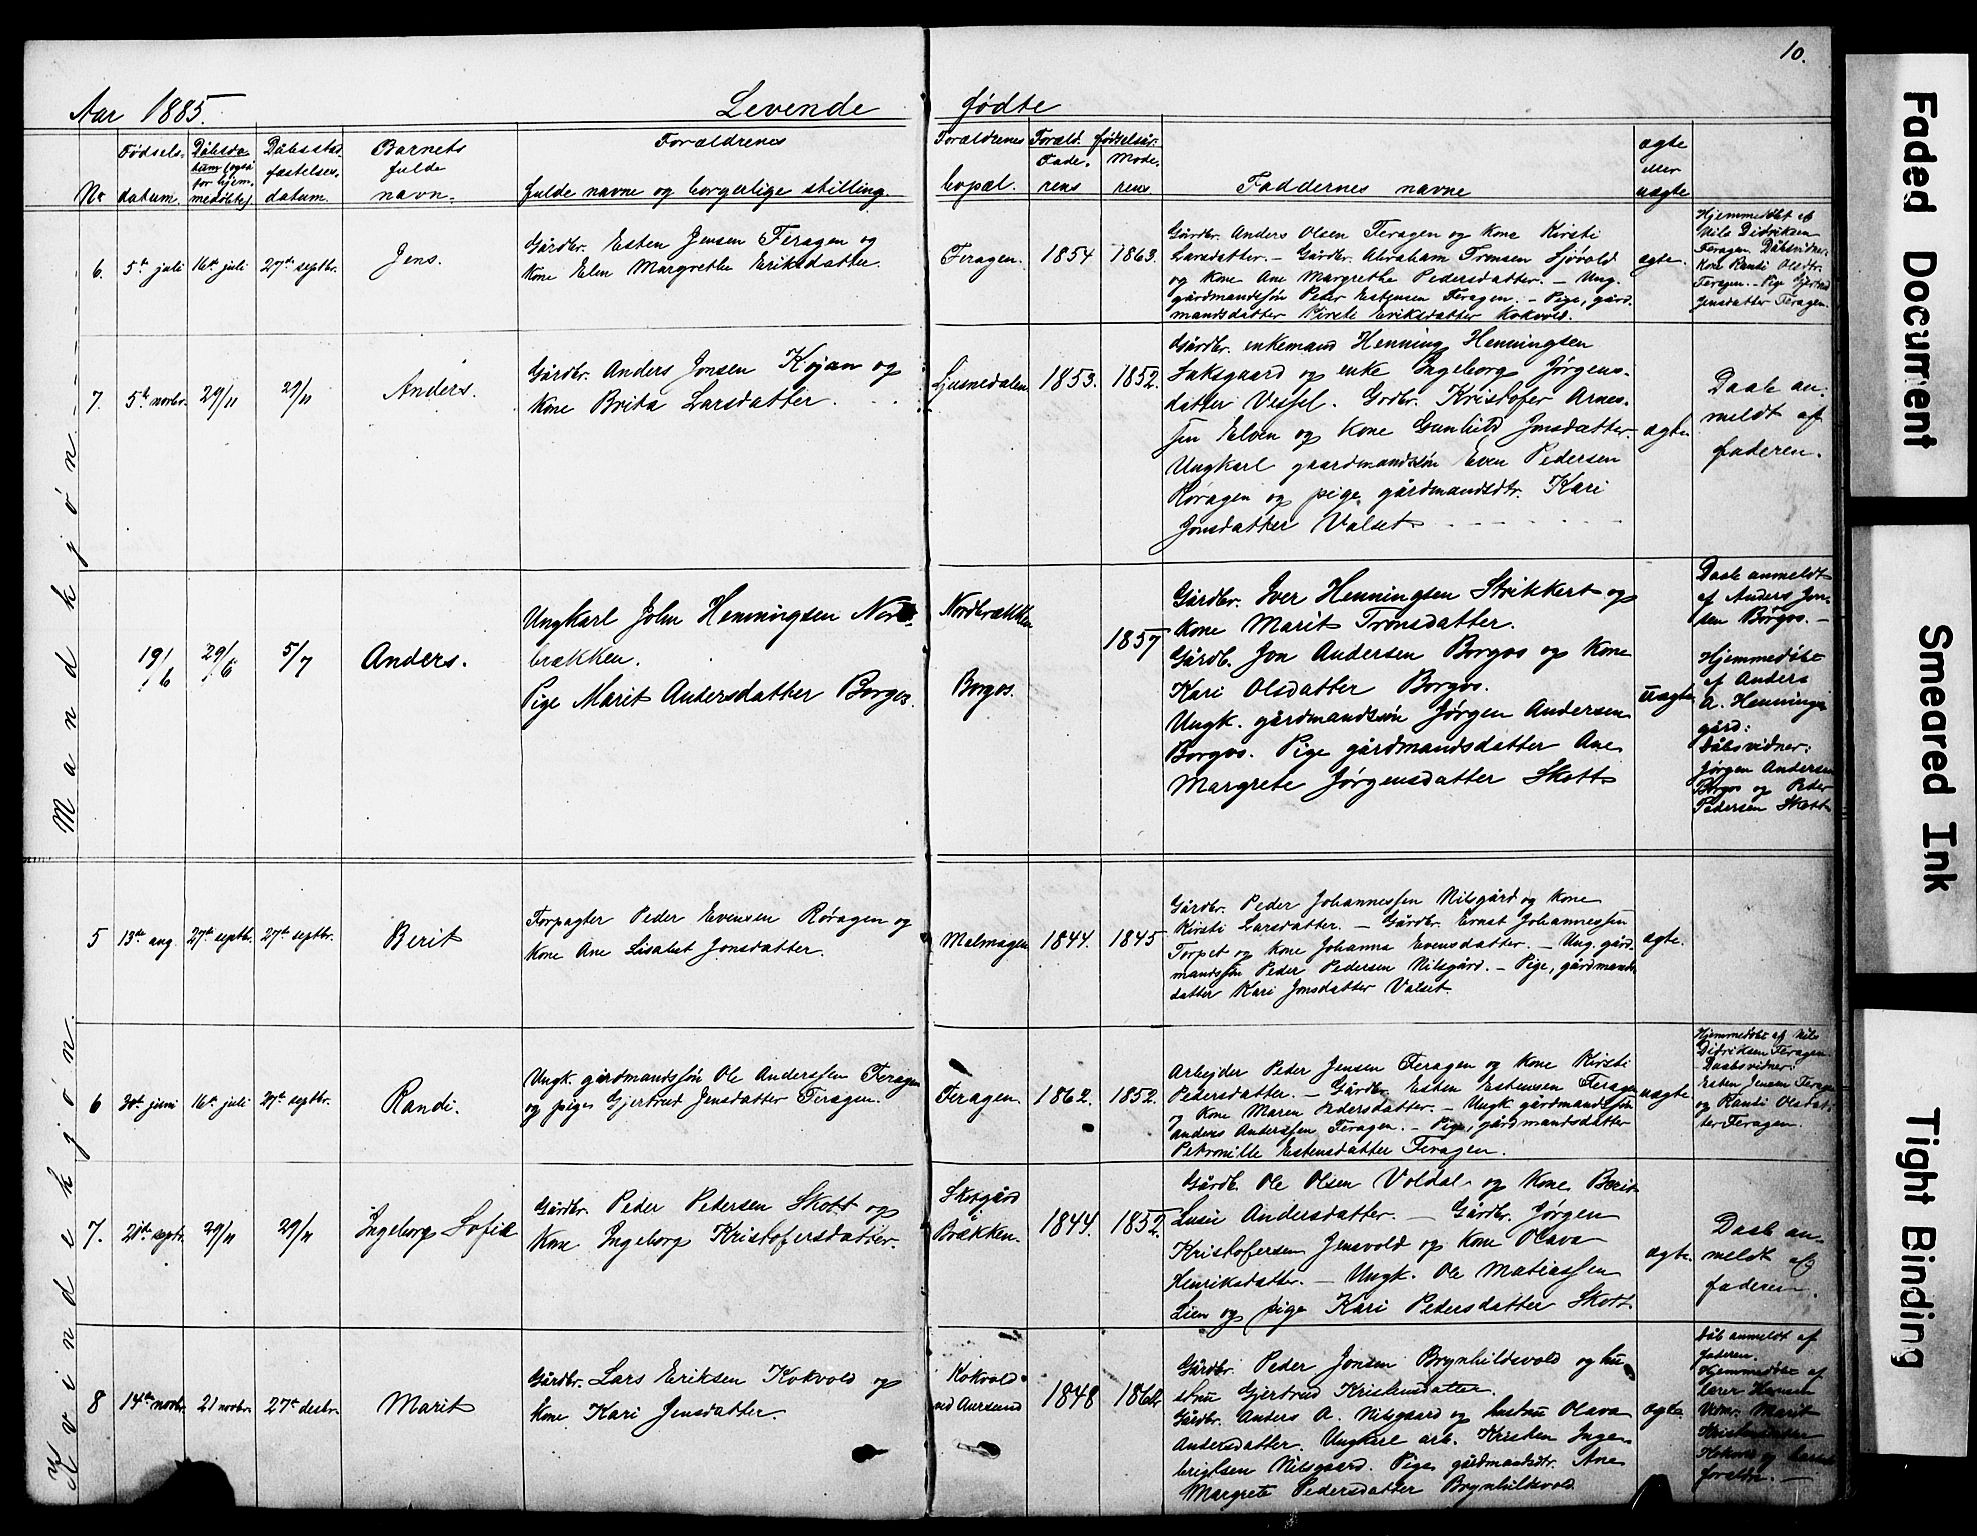 10.
Aar 1885.
Levende fødte
Nr
Fødsels- datum.
Dåbsda- tum (også for hjem- medøbte)
Dåbsstad- fæstelses- datum.
Barnets fulde navn.
Forældrenes fulde navne og borgerlige stilling.
Forældrenes bopæl.
Foræld. fødselsår.
Fade- rens
Mode- rens
Faddernes navne
ægte eller uægte
Mandkjøn
6.
5te juli
16te juli
27de septbr.
Jens.
Gårdbr. Esten Jensen Feragen og
kone Elen Margrethe Eriksdatter.
Feragen.
1854
1863.
Gårdbr. Anders Olsen Feragen og kone Kirsti
Larsdatter. – Gårdbr. Abraham Tronsen Sjøvold
og kone Ane Margrethe Pedersdatter. – Ung.
gårdmandssøn Peter Estensen Feragen. – Pige, gård-
mandsdatter Birete Eriksdatter Kokvold.
ægte.
Hjemmedøbt af
Nils Didriksen
Feragen. Dåbsvidner.
Kone Randi Olsdtr.
Feragen. – Pige Gjertrud
Jensdatter Feragen.
7.
5te novbr.
29/11
29/11
Anders.
Gårdbr. Anders Jonsen Kojan og
kone Brita Larsdatter.
Ljusnedalen
1853.
1852.
Gårdbr. enkemand Henning Henningsen
Saksgaard og enke Ingeborg Jørgens-
datter Vessel. Grdbr. Kristofer Arnes-
sen Elven og kone Gunhild Jonsdatter.
Ungkarl gaardmandssøn Even Pedersen
Røragen og pige gårdmandsdtr. Kari
Jonsdatter Valset.
ægte
Daab an-
meldt af
faderen.
19/6
29/6
5/7
Anders.
Ungkarl John Henningsen Nord-
brækken.
Pige Marit Andersdatter Borgos.
Nordbrækken
Borgos.
1857
Gårdbr. Iver Henningsen Strikkert og
kone Marit Tronsdatter.
Gårdb. Jon Andersen Borgos og kone
Kari Olsdatter Borgos.
Ungk. gårdmandssøn Jørgen Andersen
Borgos. Pige gårdmandsdatter Ane
Margrete Jørgensdatter Skott
uægte
Daab anmeldt
af Anders Jon-
sen Borgos. –
Hjemmedøbt
af Anders
A. Hennings-
gård:
Dåbsvidner:
Jørgen Andersen
Borgos og Peder
Pedersen Skott
Kvindekjøn.
5
13de aug.
27de septbr.
27de septbr.
Berit
Forpagter Peder Evensen Røragen og
kone Ane Lisabet Jonsdatter.
Malmagen
1844.
1845
Gårdbr. Peder Johannessen Nilsgård og kone
Kirsti Larsdatter. – Gårdbr. Ernst Johannessen
Torpet og kone Johanna Evensdatter. – Ung. gård-
mandssøn Peder Pedersen Nilsgård. – Pige, gårdmands-
datter Kari Jonsdatter Valset.
ægte.
6
30te juni
16te juli
27de septbr.
Randi.
Ungk. gårdmandssøn Ole Anderssen Feragen
og pige Gjertrud Jensdatter Feragen.
Feragen.
1862.
1852.
Arbejder Peder Jensen Feragen og kone Kirsti
Pedersdatter. – Gårdbr. Esten Estensen Feragen
og kone Maren Pedersdatter. – Ungk. gårdmandssøn
Anders Anderssen Feragen. – Pige, gårdmandsdatter
Petronille Estensdatter Feragen.
uægte
Hjemmedøbt af Nils
Didriksen Feragen
Daabsvidner:
Esten Jensen Feragen
og Randi Olsdat-
ter Feragen.
7.
21de septr.
29/11
29/11
Ingeborg Sofie
Gårdbr. Peder Pedersen Skott og
kone Ingeborg Kristofersdatter.
Skotgård
Brækken.
1844.
1852.
Gårdb. Ole Olsen Voldal og kone Berit
Lusie Andersdatter. – Gårdbr. Jørgen
Kristofersen Jensvold og kone Olava
Henriksdatter. – Ungk. Ole Matiassen
Lien og pige Kari Pedersdatter Skott
ægte.
Daab an-
meldt af
faderen.
8
14de novbr.
21 novbr.
27de desbr.
Marit
Gårdbr. Lars Eriksen Kokvold og
kone Kari Jensdatter.
Kokvold
ved Aursund
1848
Gårdbr. Peder Jonsen Brynhildsvold og hu-
stru Gjertrud Kristensdatter.
Gårdbr. Anders A. Nilsgaard og hustru Olava
Andersdatter. Ungkarl arb. Kristen Inge-
brigtsen Nilsgaard. Pige gårdmandsdtr. Ane
Margrete Pedersdatter Brynhildsvold
ægte
Dåb anmeldt af
faderen.
Hjemmedøbt af
lærer Hansen
Vidnr. Marit
Kristensdatter
Kokvold og barnets
forældre. –
Faded Document
Smeared Ink
Tight Binding